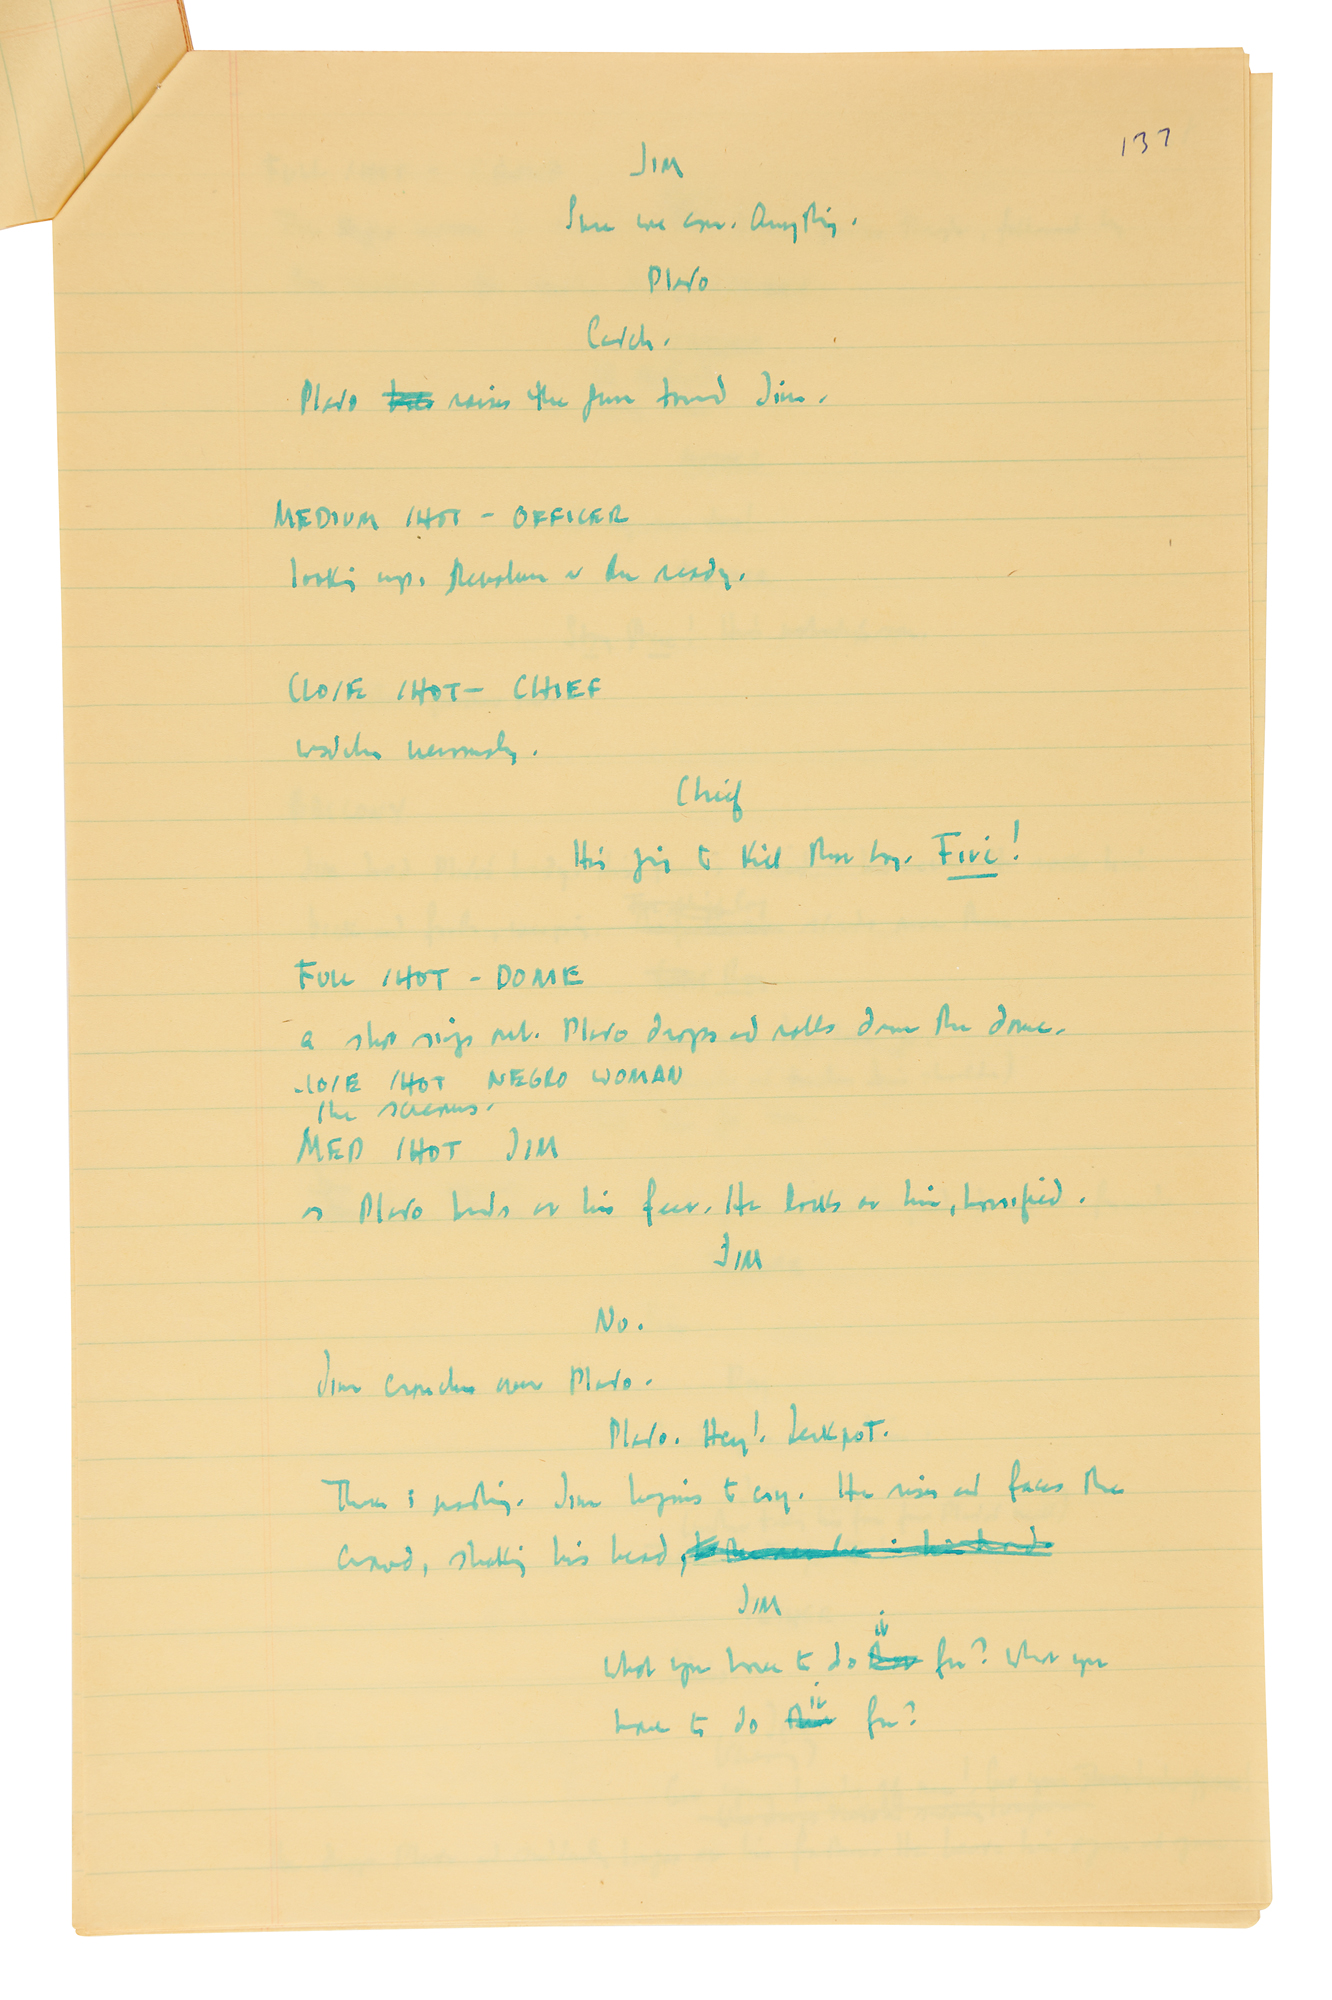 137
JIM
Sure we can. Anything.
Plato
Catch.
Plato raises the gun toward Jim.
MEDIUM SHOT - OFFICER
looking up. Revolver at the ready.
CLOSE SHOT - CHIEF
watches nervously.
Chief
He's going to kill that boy. Fire!
FULL SHOT - DOME
A shot rings out. Plato drops and rolls down the dome.
CLOSE SHOT NEGRO WOMAN
She screams.
MED SHOT JIM
as Plato lands at his feet. He looks at him, horrified.
JIM
No.
Jim crouches over Plato.
Plato. Hey! Jackpot.
There is nothing. Jim begins to cry. He rises and faces the
crowd, shaking his head,
JIM
it
What you have to do for? What you
it
have to do for?